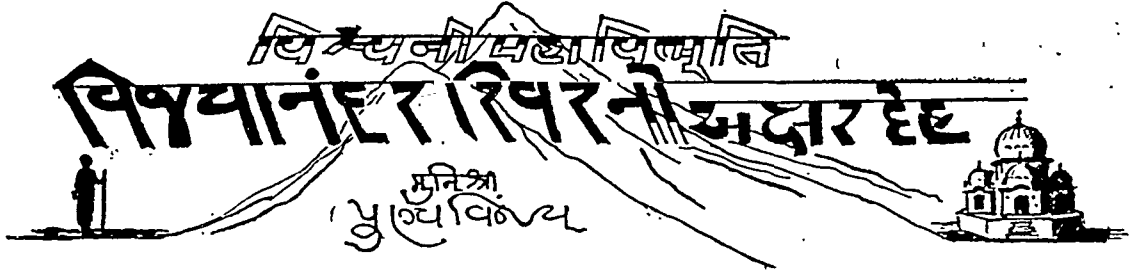 વિશ્વની મહાવિભૂતિ
વિજયાનંદસૂરિવરનો અક્ષર દેહ
મુનિશ્રી
પુણ્યવિજય